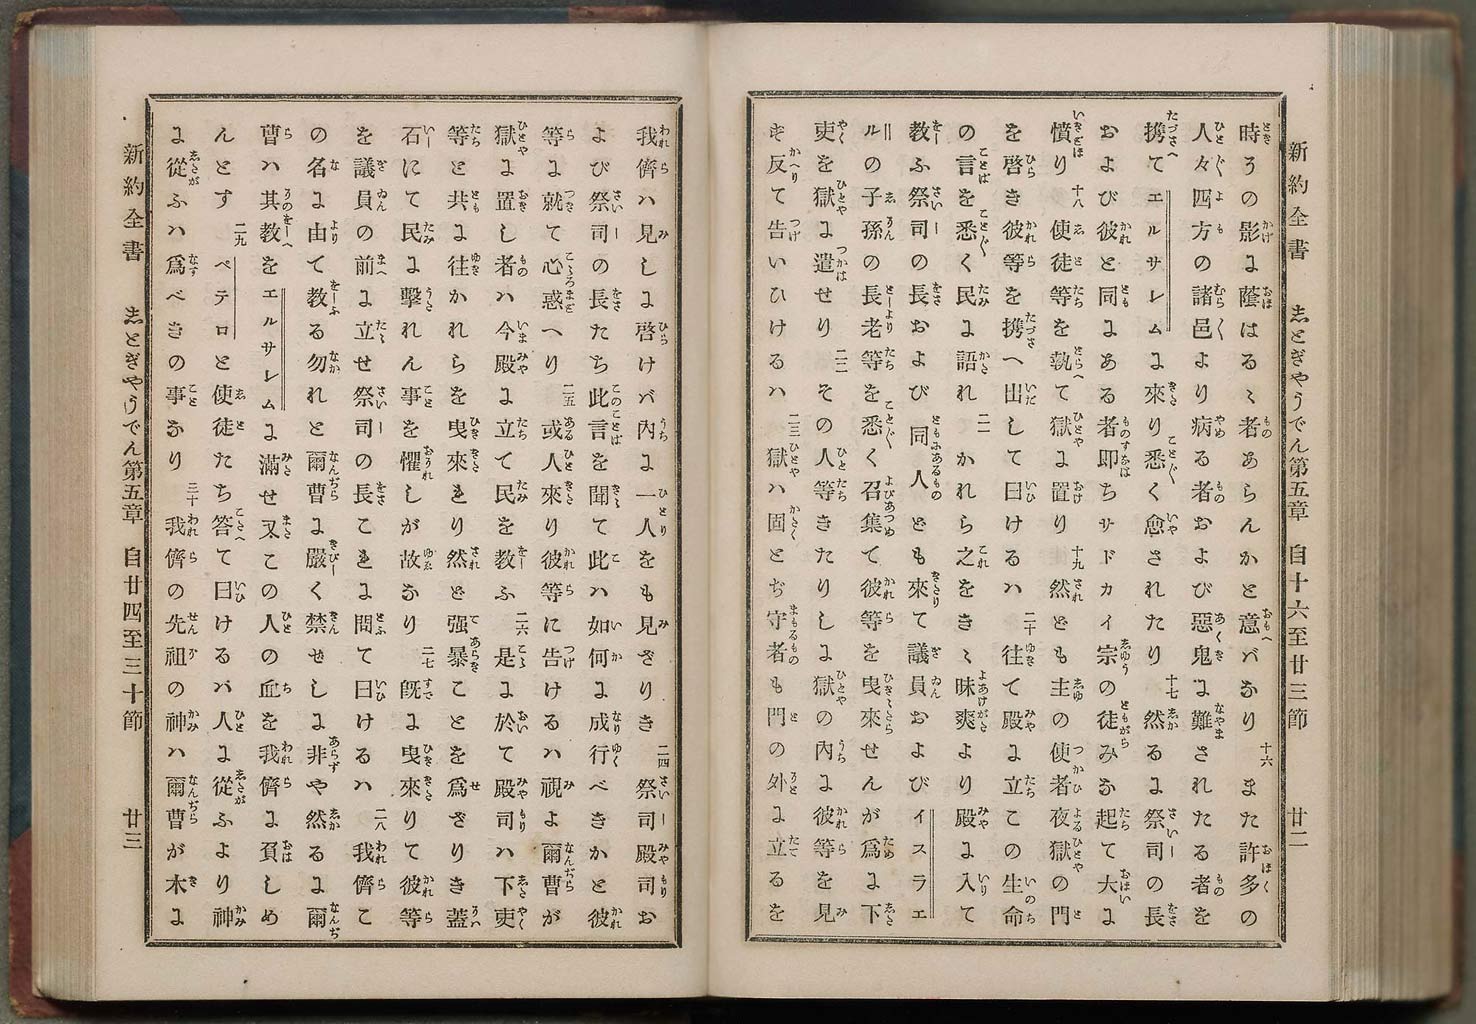 新約全書　𛁈とぎやうでん第五章　自十六至廿三節　廿二
時その影に蔭はるゝ者あらんかと意バなり 十六 また許多の
人々四方の諸邑より病る者および惡鬼に難されたる者を
携てエルサレムに來り悉く愈されたり 十七 然るに祭司の長
および彼と同にある者即ちサドカイ宗の徒みな起て大に
憤り 十八 使徒等を執て獄に置り 十九 然ども主の使者夜獄の門
を啓き彼等を携へ出して曰けるハ 二十 往て殿に立この生命
の言を悉く民に語れ 二一 かれら之をきゝ昧爽より殿に入て
教ふ祭司の長および同人ども來て議員およびイスラエ
ルの子孫の長老等を悉く召集て彼等を曳來せんが爲に下
吏を獄に遣せり 二二 その人等きたりしに獄の内に彼等を見
ず反て告いひけるハ 二三 獄ハ固とぢ守者も門の外に立るを
我儕ハ見しに啓けバ内に一人をも見ざりき 二四 祭司殿司お
よび祭司の長たち此言を聞て此ハ如何に成行べきかと彼
等に就て心惑へり 二五 或人來り彼等に告けるハ視よ爾曹が
獄に置し者ハ今殿に立て民を教ふ 二六 是に於て殿司ハ下吏
等と共に往かれらを曳來れり然ど强暴ことを爲ざりき蓋
石にて民に擊れん事を懼しが故なり 二七 旣に曳來りて彼等
を議員の前に立せ祭司の長これに問て曰けるハ 二八 我儕こ
の名に由て教る勿れと爾曹に嚴く禁せしに非や然るに爾
曹ハ其教をエルサレムに滿せ又この人の血を我儕に負しめ
んとす 二九 ペテロと使徒たち答て曰けるバ人に從ふより神
に從ふハ爲べきの事なり 三十 我儕の先祖の神ハ爾曹が木に
新約全書　𛁈とぎやうでん第五章　自廿四至三十節　廿三